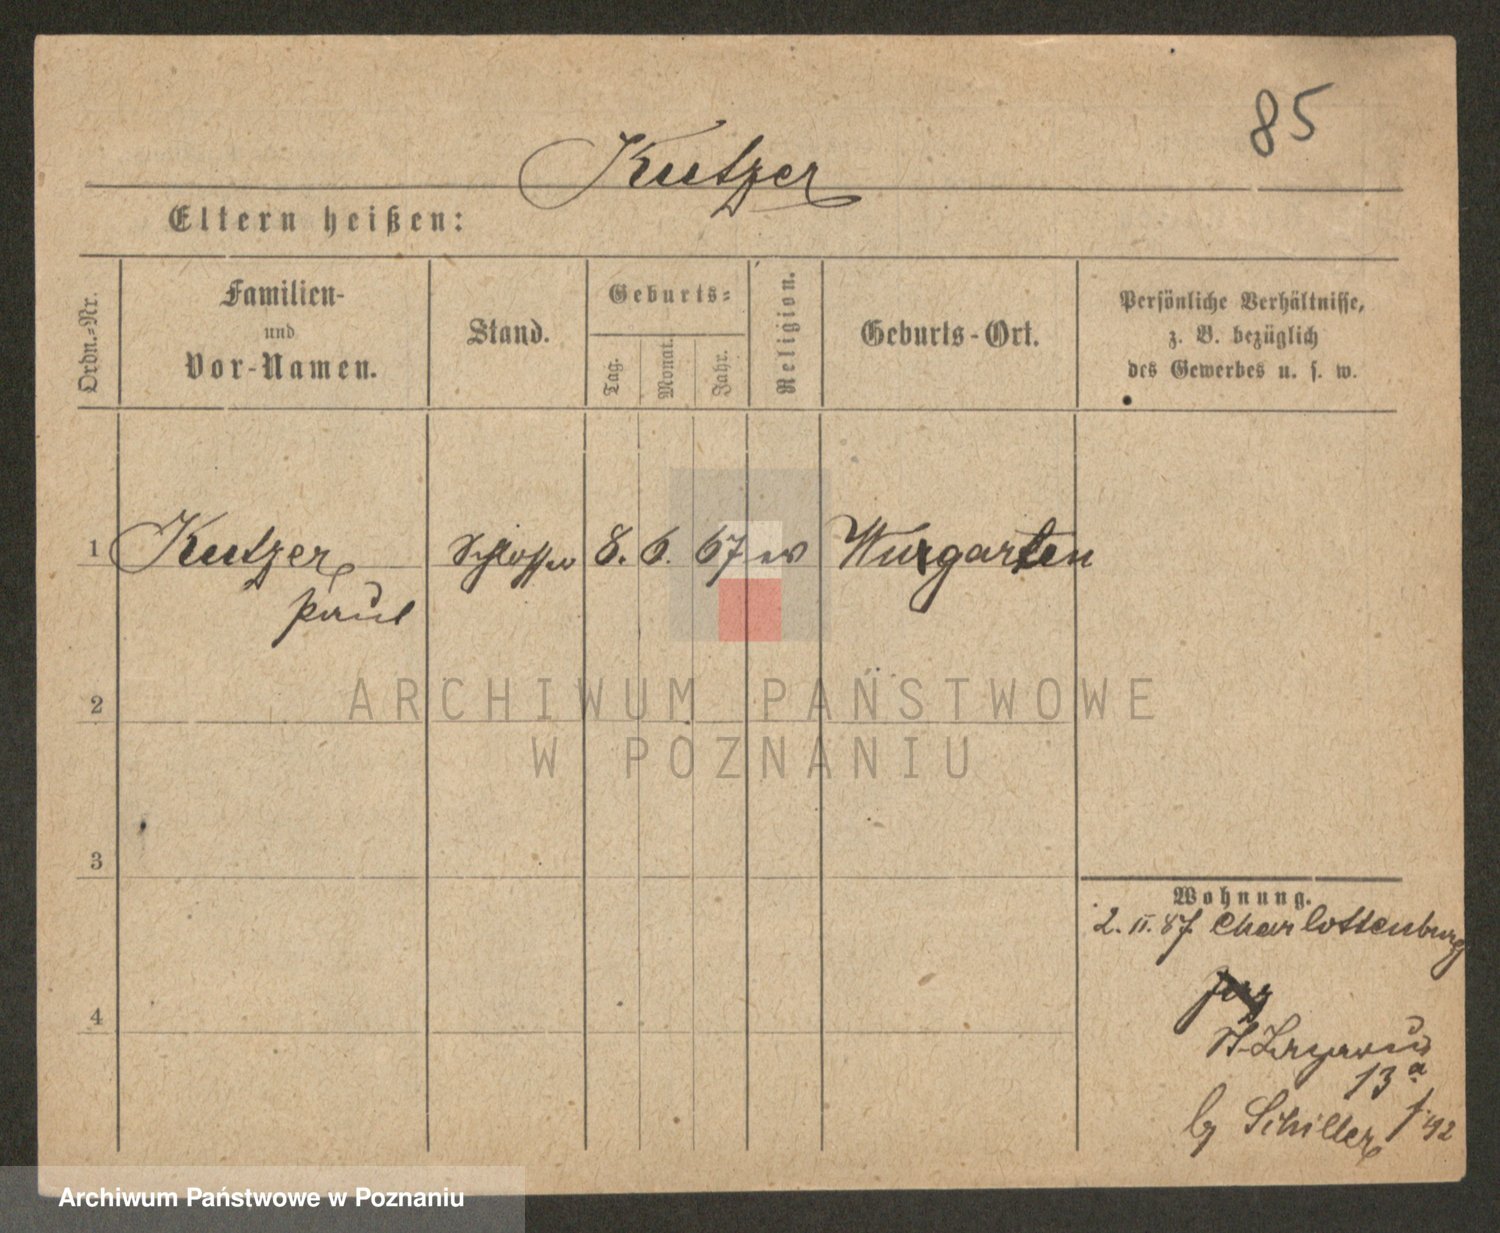 85
Kutzer
Eltern heißen:
Ordn.-Nr.
Familien-
und
Vor-Namen.
Stand.
Geburts-
Tag.
Monat.
Jahr.
Religion.
Geburts-Ort.
Persönliche Verhältnisse,
z. B. bezüglich
des Gewerbes u. s. w.
1 Kutzer Schlosser 8. 6. 67 ev Wurgarten
Paul
2
3
4
Wohnung.
2. II. 87. Charlottenburg
St. Lazarus
13 a
by Schiller
ARCHIWUM PAŃSTWOWE
W POZNANIU
Archiwum Państwowe w Poznaniu